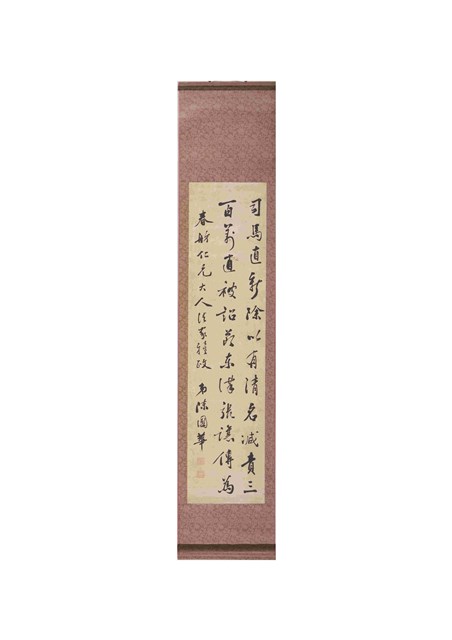 司馬直新除以有清名減責三
百萬直被詔節東漢張讓傳為
春舫仁兄大人法家政 弟陳國華